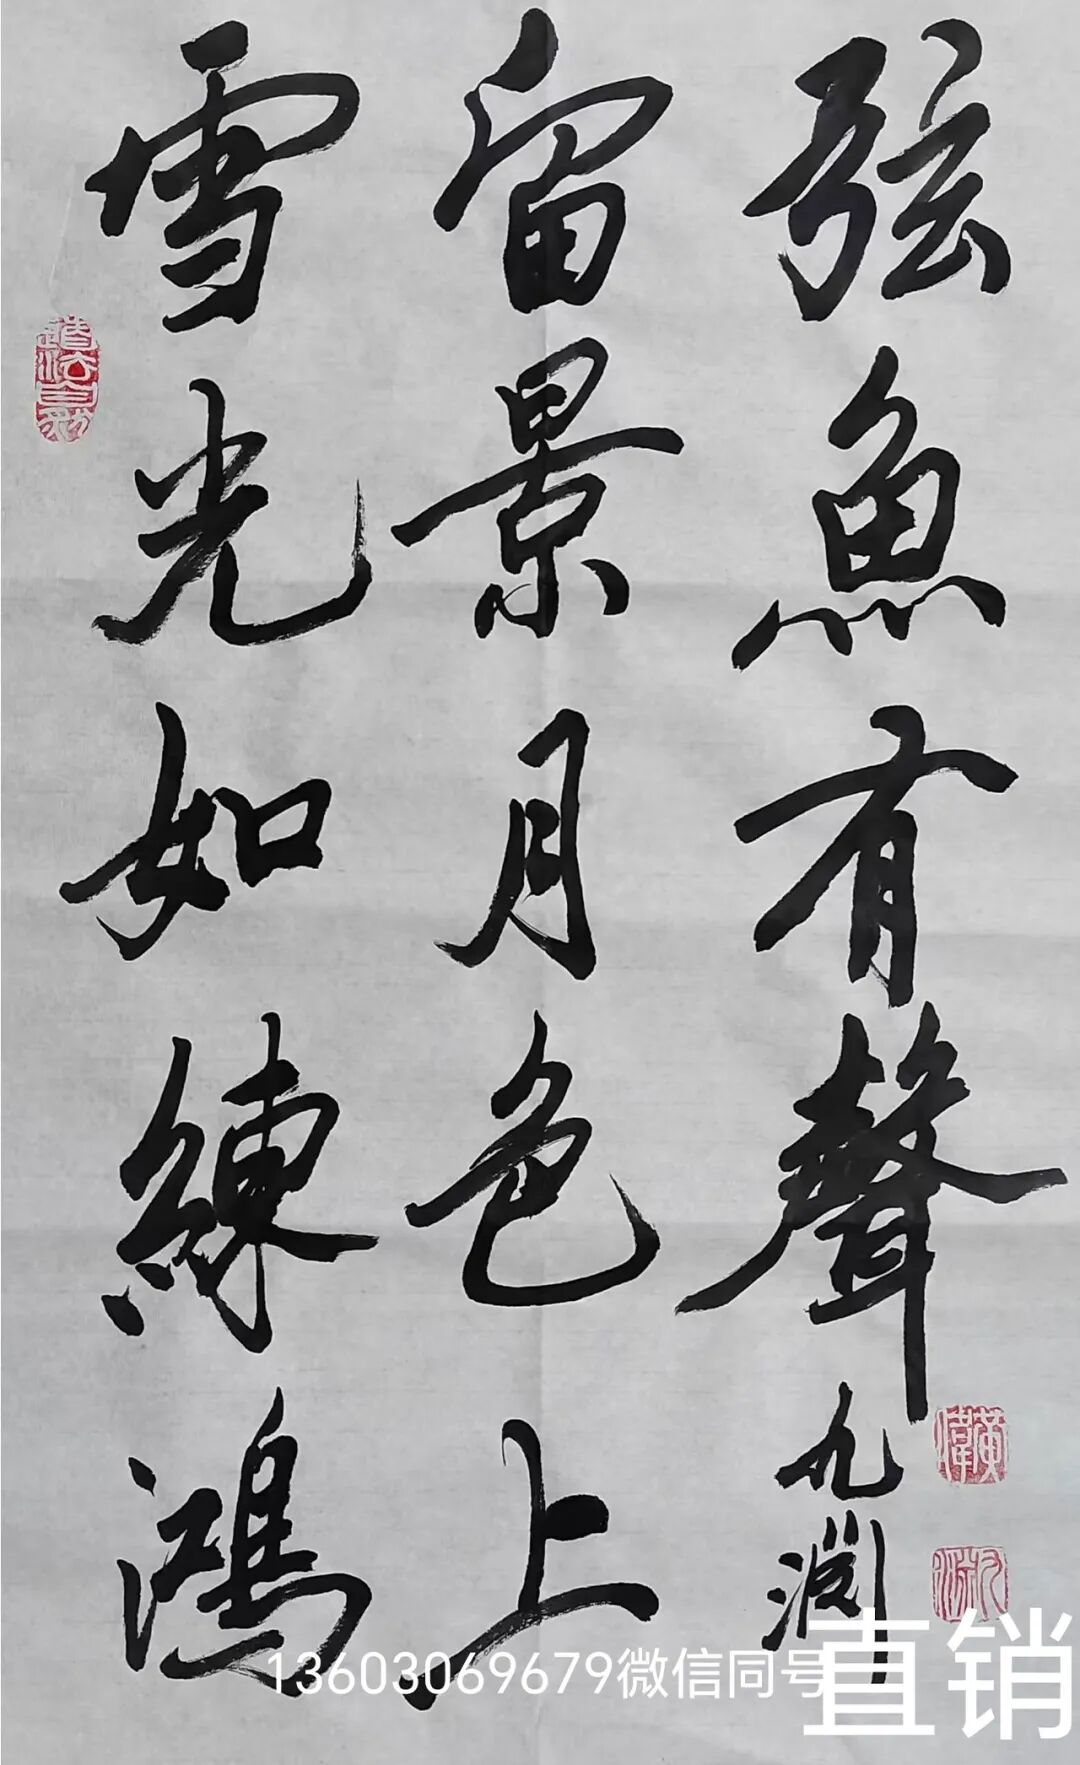 道法自然
雪光如練鴻
留景月色上
弦魚有聲
九淵
黃偉
九淵
13603069679微信同号
直销